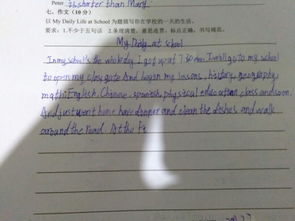 Peter is shorter than Mary.
七、作文(10分)
以 My Daily Life at School 为题描写你在学校的一天的生活。
要求：1.不少于五句话 2.条理清楚，语意连贯，标点正确，书写规范。
My Daily at school
In my school's the whole day. I got up at 7:00 Am. I will go to my school
to open my class gate And began my lessons, history, geography
math English. Chinese, spanish, physical education class and soon.
And just went home have dinner and clean the dishes and walk
around the road. At the